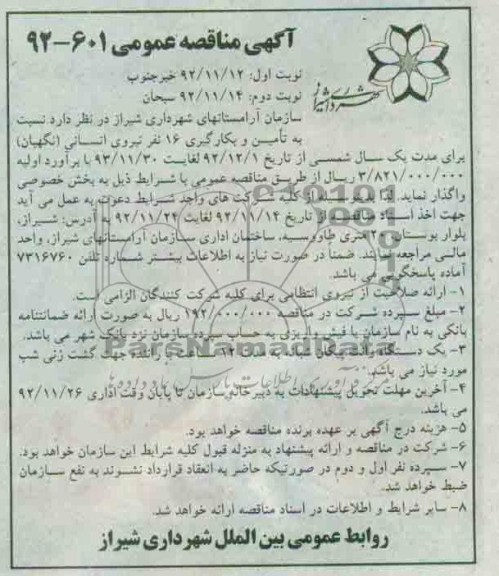 آگهی مناقصه عمومی ۶۰۱-۹۲
نوبت اول: ۹۲/۱۱/۱۲ خبرجنوب
نوبت دوم: ۹۲/۱۱/۱۴ سبحان
شهرداری شیراز
سازمان آرامستانهای شهرداری شیراز در نظر دارد نسبت
به تأمین و بکارگیری ۱۶ نفر نیروی انسانی (نگهبان)
برای مدت یک سال شمسی از تاریخ ۹۲/۱۲/۱ لغایت ۹۳/۱۱/۳۰ با برآورد اولیه
۳/۸۲۱/۰۰۰/۰۰۰ ریال از طریق مناقصه عمومی با شرایط ذیل به بخش خصوصی
واگذار نماید. لذا بدینوسیله از کلیه شرکت های واجد شرایط دعوت به عمل می آید
جهت اخذ اسناد مناقصه از تاریخ ۹۲/۱۱/۱۴ لغایت ۹۲/۱۱/۲۴ به آدرس: شیراز،
بلوار بوستان ۲۰ متری طاووسیه، ساختمان اداری سازمان آرامستانهای شیراز، واحد
مالی مراجعه نمایند. ضمنا در صورت نیاز به اطلاعات بیشتر شماره تلفن ۷۳۱۶۷۶۰
آماده پاسخگویی می باشد.
۱- ارائه صلاحیت از نیروی انتظامی برای کلیه شرکت کنندگان الزامی است.
۲- مبلغ سپرده شرکت در مناقصه ۱۹۲/۰۰۰/۰۰۰ ریال به صورت ارائه ضمانتنامه
بانکی به نام سازمان یا فیش واریزی به حساب سپرده سازمان نزد بانک شهر می باشد.
۳- یک دستگاه وانت پیکان شبانه به مدت ۱۲ ساعت با راننده جهت گشت زنی شب
مورد نیاز می باشد.
۴- آخرین مهلت تحویل پیشنهادات به دبیرخانه سازمان تا پایان وقت اداری ۹۲/۱۱/۲۶
می باشد.
۵- هزینه درج آگهی بر عهده برنده مناقصه خواهد بود.
۶- شرکت در مناقصه و ارائه پیشنهاد به منزله قبول کلیه شرایط این سازمان خواهد بود.
۷- سپرده نفر اول و دوم در صورتیکه حاضر به انعقاد قرارداد نشوند به نفع سازمان
ضبط خواهد شد.
۸- سایر شرایط و اطلاعات در اسناد مناقصه ارائه خواهد شد.
روابط عمومی بین الملل شهرداری شیراز
ParsNamadData